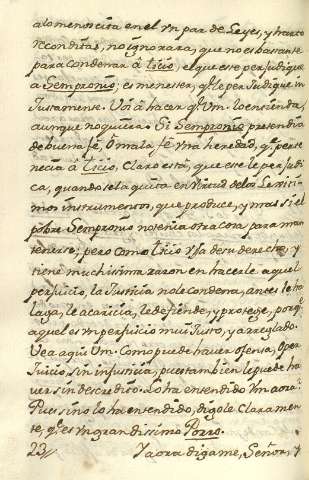 alomenos cita en el vn par de Leyes, y harto
recónditas, no ignorara, que no es bastante
para condenar à Ticio, el que este perjudique
a Sempronio; es menester, qͤ le perjudique in
Justamente. Uoi à hacer qͤ Um. lo entienda,
aunque no quiera. Si Sempronio pretendia
de buena fè, ò mala fè vna heredad, qͤ perte
necia à Ticio, Claro està, que este le perjudi
ca, quando se la quita en virtud de los Lexiti
mos instrumentos, que produce, y mas si el
pobre Sempronio no tenia otra cosa para man
tenerse; pero como Ticio vsa de su derecho, y
tiene muchissima razon en hacerle aquel
perjuicio, la Justicia no le condena, antes le ha
laga, le acaricia, le defiende, y protege, porqͤ
aquel es vn perjuicio mui Justo, y arreglado.
Vea aqui Um. Como puede haver ofensa, ò per
Juicio, sin injusticia, pues tambien le puede ha
ver sin descredito. Lo ha entendido Vm aora?
Pues si no lo ha entendido, digole Claramen
te, qͤ es vn grandissimo Porro.
23// Y aora digame, Señor, y